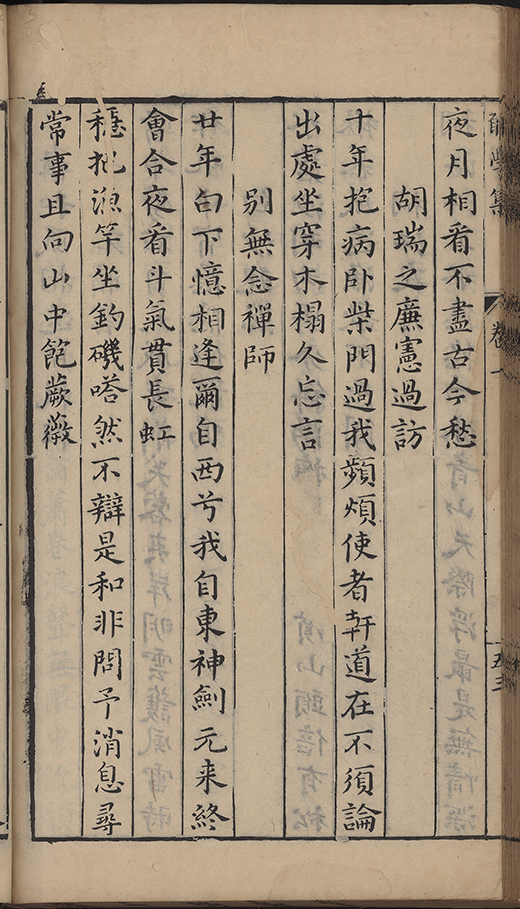 集 卷一
夜月相看不盡古今愁
胡瑞之廉憲過訪
十年抱病卧柴門過我蘋煩使者軒道在不須論
出處坐穿木榻久忘言
别無念禪師
廿年白下憶相逢爾自西兮我自東神劍元来終
會合夜看斗氣貫長虹
穩把漁竿坐釣磯嗒然不辯是和非問予消息尋
常事且向山中飽蕨薇